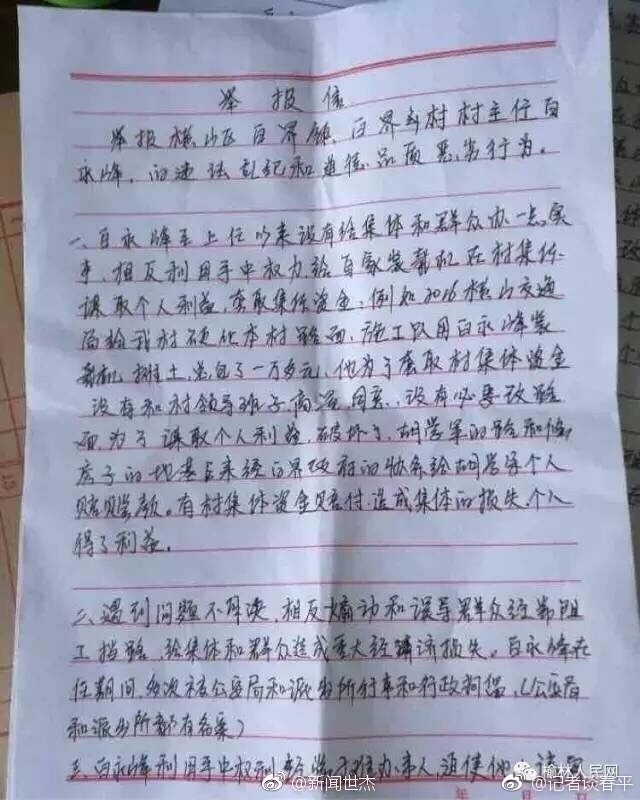 举报信
举报横山区白界镇、白界乡村村主任白
永峰,的违法乱纪和道德品质恶劣行为。
一、白永峰至上任以来没有给集体和群众办一点实
事,相反利用手中权力,给自家装载机在村集体
谋取个人利益,套取集体资金,例如2016横山交通
局给我村硬化本村路面,施工队用白永峰装
载机推土,总包了一万多元,他为了套取村集体资金
没有和村领导班子商量同意,没有必要改路
面,为了谋取个人利益,破坏了,胡学军的路和修
房子的地基后来经白界政府的协条给胡学军个人
赔偿款。有村集体资金赔付,造成集体的损失,个人
得了利益。
二、遇到问题不解决,相反煽动和误导群众经常阻
工挡路,给集体和群众造成重大经济损失。白永峰在
任期间,多次被公安局和派出所行事和行政拘留,(公安局
和派出所都有名案)
三、白永峰利用手中权利
办事人,
年 月 日
榆林人民网
@新闻世杰
@记者谈春平